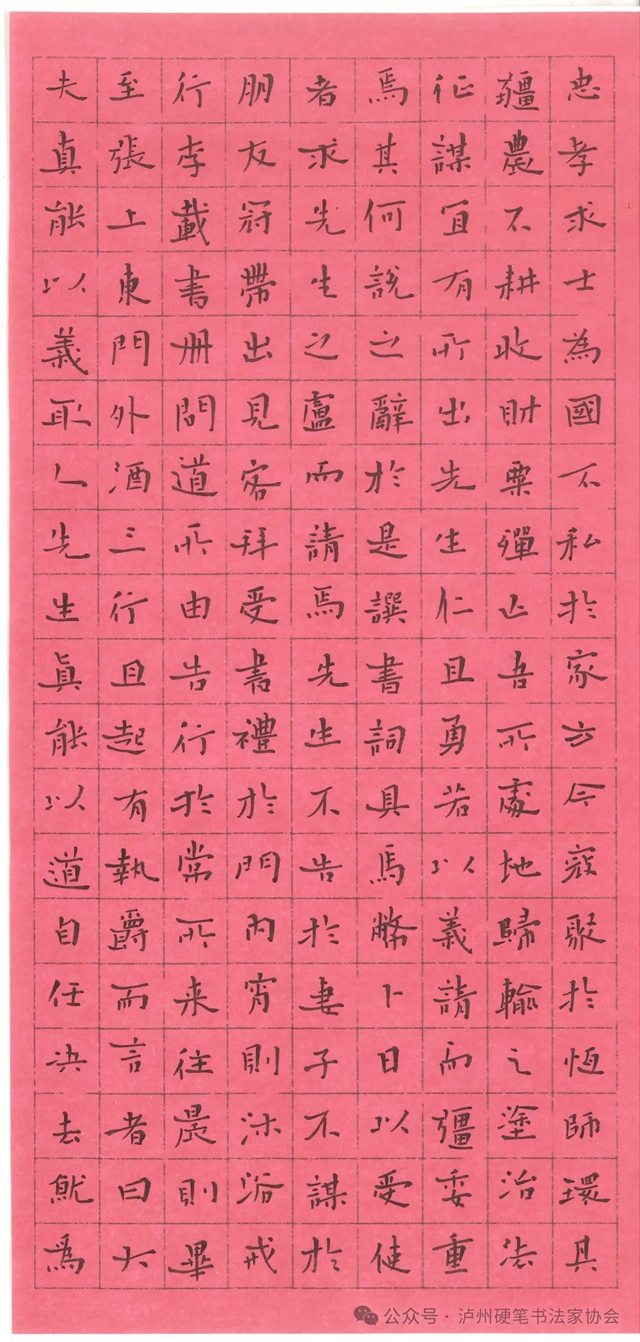 忠孝求士為國不私於家方今寇聚於恆師環其
疆農不耕收財粟殫亡吾所處地歸輸之塗治法
征謀宜有所出先生仁且勇若以義請而彊委重
焉其何說之辭於是譔書詞具馬幣卜日以受使
者求先生之盧而請焉先生不告於妻子不謀於
朋友冠帶出見客拜受書禮於門內宵則沐浴戒
行李載書冊問道所由告行於常所来往晨則畢
至張上東門外酒三行且起有執爵而言者曰大
夫真能以義取人先生眞能以道自任决去就為
公众号·泸州硬笔书法家协会